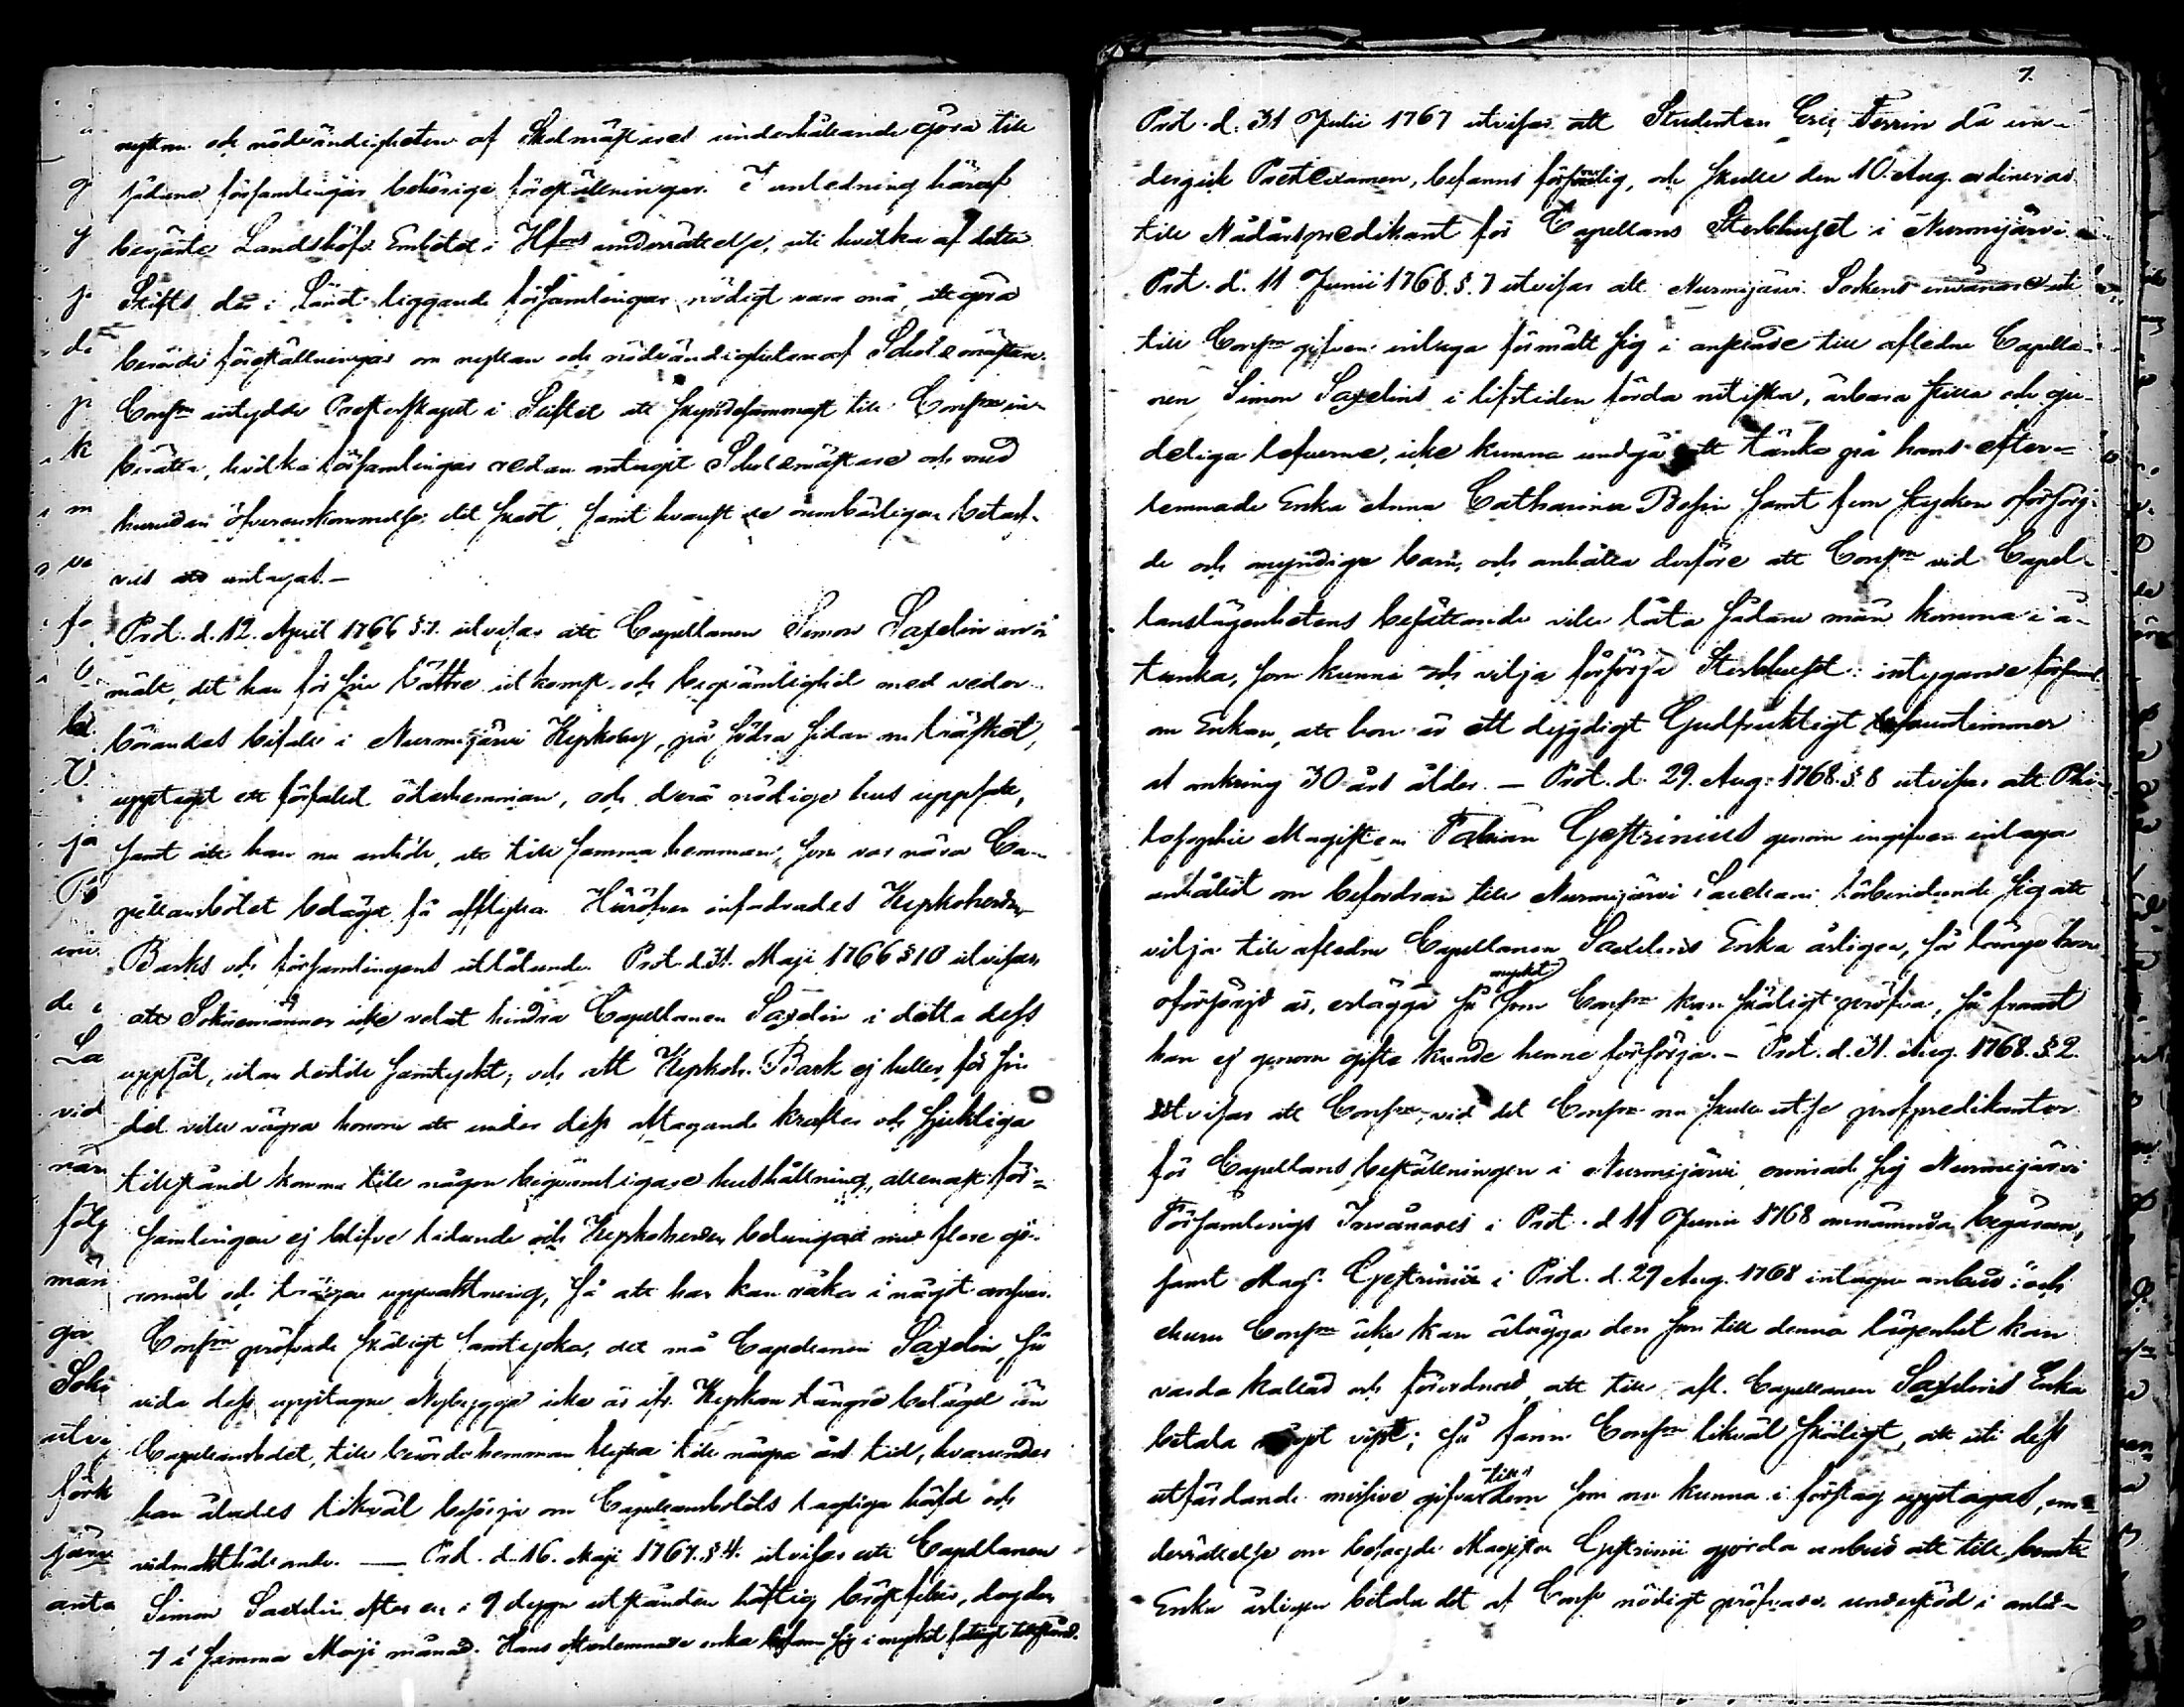 nyttan och nödvändigheten af Skolmästares underhållande göra till
sådane församlingar behörige föreställningar. I anledning häraf
begärte Landshöfd. Embetet i Hfors underrättelse, uti hvilka af detta
Stifts där i Länet liggande församlingar nödigt vara må, att göra
berörde föreställningar om nyttan och nödvändigheten af Scholemästare.
Cons:m antydde Presterskapet i Stiftet att skyndesammast till Cons:m in-
berätta, hvilka församlingar redan antagit Scholemästare och med
huruvida öfverenskommelse det skedt, samt hvarest de oumbärligen betarf-
vas att antagas.—
Prot. d. 12. April 1766 §.7. utvisar att Capellanen Simon Saxelin an-
mält, det han för sin bättre utkomst och beqvämlighet med veder-
börandes bifall i Nurmijärvi Kyrkoby, på södra sidan om träsket,
upptagit ett förfallet ödeshemman, och derå nödige hus uppsatt,
samt att han nu anhöll, att till samma hemman, som var nära Ca-
pellansbolet beläget få afflytta. Häröfver infodrades Kyrkoherden
Barks och församlingens utlåtande. Prot. d. 31. Maji 1766 §10 utvisar,
att Soknemännen icke velat hindra Capellanen Saxelin i detta dess
uppsåt, utan dertill samtyckt; och att Kyrkoh. Bark ej heller för sin
del velat vägra honom att under dess aftagande krafter och sjukliga
tillstånd komma till någon beqvämligare hushållning, allenast för-
samlingen ej blifver lidande och Kyrkoherden betungad med flere gö-
romål och trägen uppvaktning, så att han kan råka i något ansvar.
Cons:m pröfvade skäligt samtycka, det må Capellanen Saxelin, så
vida dess upptagne Nybygge icke är ifr. Kyrkan längre beläget än
Capellansbolet, till berörde hemman flytta till några års tid, hvarunder
han ålades likväl besörja om Capellansbolets lagliga häfd och
vidmakthållande. — Prot. d. 16. Maji 1767. §.4. utvisar att Capellanen
Simon Saxelin efter en i 9 dygn utstånden häftig bröstfeber, dog den
7 i samma Maji månad. Hans efterlemnade enka befann sig i mycket fattigt tillstånd.
7.
Prot. d. 31 Julii 1767 utvisar att Studenten Eric Ferrin då un-
dergick Prestexamen, befanns försvarlig, och skulle den 10. Aug. ordineras
till Nådårspredikant för Capellans Sterbhuset i Nurmijärvi.
Prot. d. 11 Junii 1768. §.7 utvisar att Nurmijärvi Sockens invånare uti
till Cons:m gifven inlaga förmält sig i anseende till afledne Capella-
nen Simon Saxelins i lifstiden förda nitiska, ärbara stilla och gu-
deliga lefverne, icke kunna undgå att tänka på hans efter-
lemnade Enka Anna Catharina Bohm samt fem stycken oförsörg-
de och omyndige barn, och anhålla derföre att Cons:m vid Capel-
lanslägenhetens besättande ville låta sådane män komma i å-
tanka, som kunna och vilja försörja Sterbhuset: intygande församl.
om Enkan, att hon är ett dygdigt Gudfruktigt fruntimmer
at omkring 30 års ålder. — Prot. d. 29. Aug. 1768. §.8 utvisar att Phi-
losophie Magistern Fabian Gestrinius genom ingifven inlaga
anhållit om befordran till Nurmijärvi Sacellani förbindande sig att
vilja till afledne Capellanen Saxelins Enka årligen, så länge hon
oförsörjd är, erlägga så mycket som Cons:m kan skäligt pröfva, så framt
han ej genom gifte kunde henne försörja. — Prot. d. 31. Aug. 1768. §.2.
utvisar att Cons:m, vid det Cons:m nu skulle utse profpredikanter
för Capellans beställningen i Nurmijärvi, erinrade sig Nurmijärvi
Församlings Invånares i Prot. d 11 Junii 1768 omnämnda begäran,
samt Mag:r Gestrinii i Prot. d. 29 Aug. 1768 intagne anbud: och
ehuru Cons:m icke kan ålägga den som till denna lägenhet kan
varda kallad och förordnad, att till afl. Capellanen Saxelins Enka
betala något visst; så fann Cons:m likväl skäligt, att uti dess
utfärdande missive gifva till dem som nu kunna i förslag upptagas, un-
derrättelse om besagde Magister Gestrinii gjorda anbud att till bemte
Enka årligen betala det af Cons:m nödigt pröfvade understöd i anled-